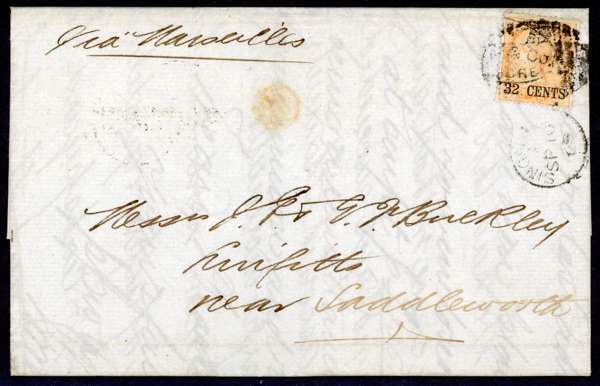 Via Marseilles
32 CENTS
SINGAPORE
Messrs J. F. & G. F. Buckley
near Saddleworth